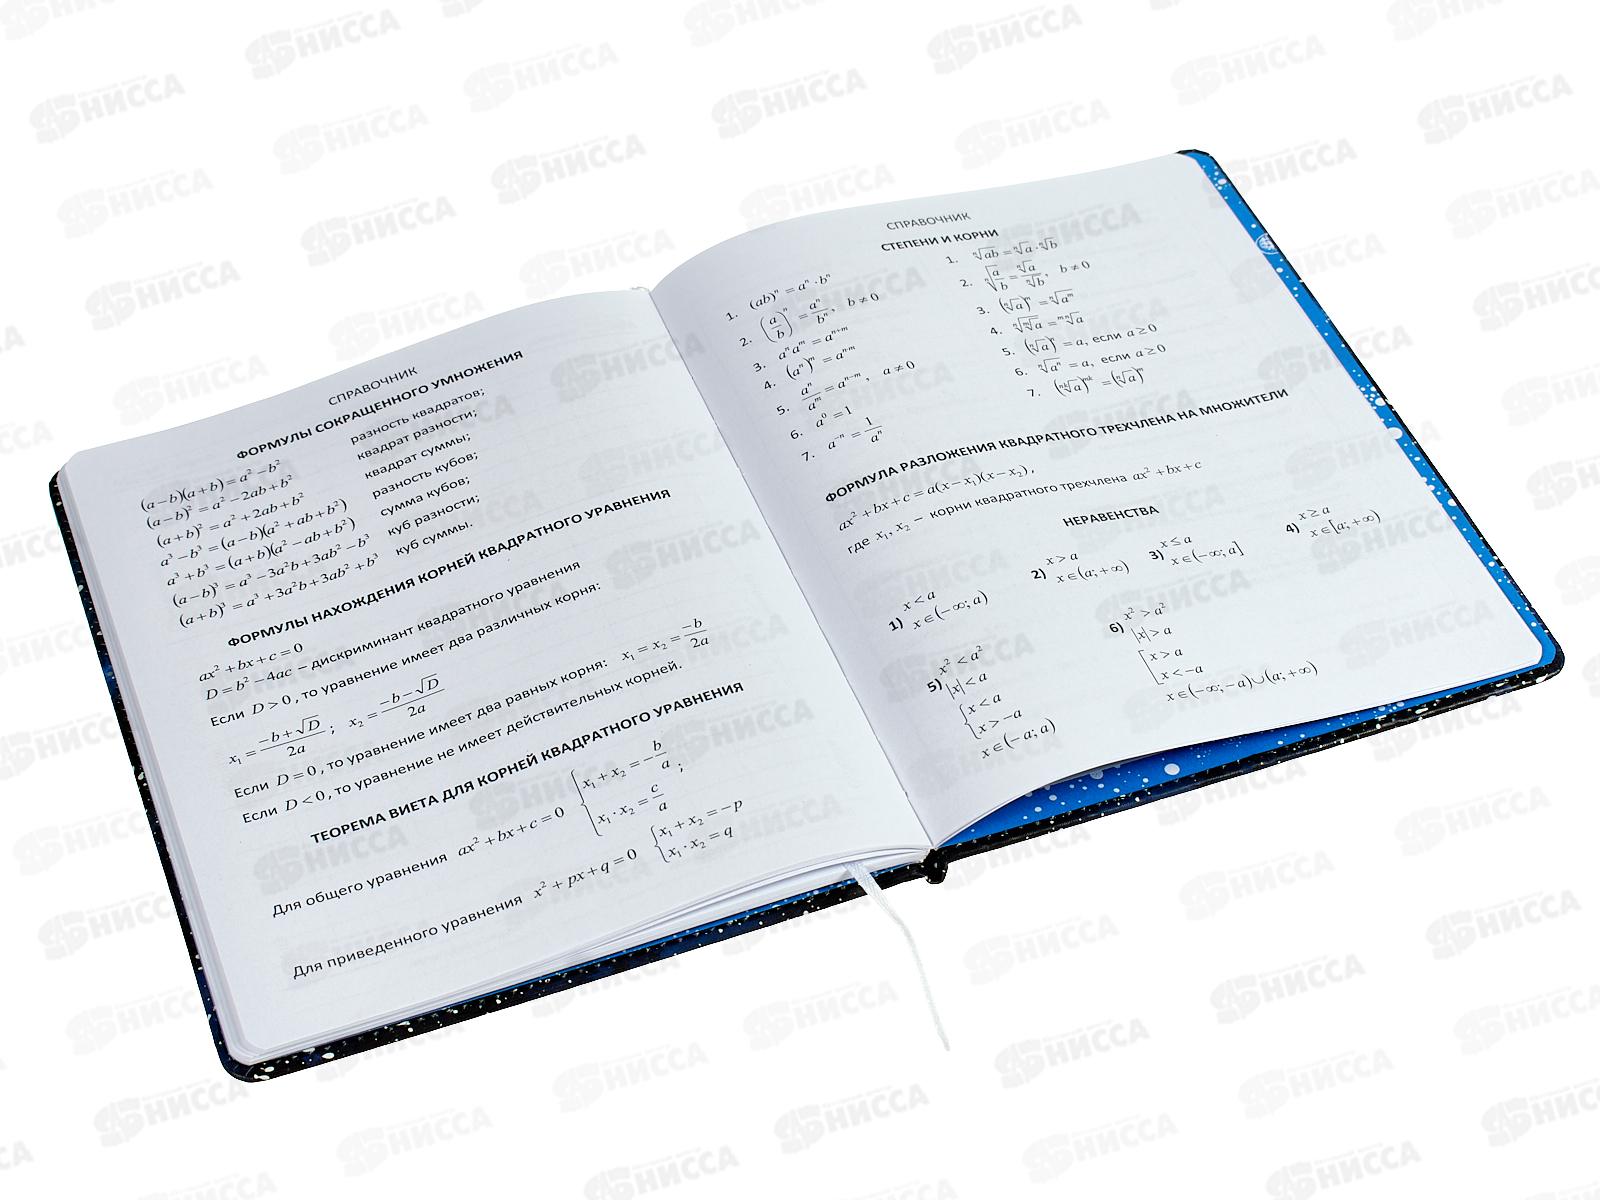 СПРАВОЧНИК
ФОРМУЛЫ СОКРАЩЕННОГО УМНОЖЕНИЯ
(a−b)(a+b)=a²−b² разность квадратов;
(a−b)²=a²−2ab+b² квадрат разности;
(a+b)²=a²+2ab+b² квадрат суммы;
a³−b³=(a−b)(a²+ab+b²) разность кубов;
a³+b³=(a+b)(a²−ab+b²) сумма кубов;
(a−b)³=a³−3a²b+3ab²−b³ куб разности;
(a+b)³=a³+3a²b+3ab²+b³ куб суммы.
ФОРМУЛЫ НАХОЖДЕНИЯ КОРНЕЙ КВАДРАТНОГО УРАВНЕНИЯ
ax²+bx+c=0
D=b²−4ac – дискриминант квадратного уравнения
Если D>0, то уравнение имеет два различных корня:
x₁=(−b+√D)/2a ; x₂=(−b−√D)/2a
Если D=0, то уравнение имеет два равных корня: x₁=x₂=−b/2a
Если D<0, то уравнение не имеет действительных корней.
ТЕОРЕМА ВИЕТА ДЛЯ КОРНЕЙ КВАДРАТНОГО УРАВНЕНИЯ
Для общего уравнения ax²+bx+c=0 {x₁+x₂=−b/a ;
x₁·x₂=c/a
Для приведенного уравнения x²+px+q=0 {x₁+x₂=−p
x₁·x₂=q
СПРАВОЧНИК
СТЕПЕНИ И КОРНИ
1. (ab)ⁿ=aⁿ·bⁿ
2. (a/b)ⁿ=aⁿ/bⁿ, b≠0
3. aⁿaᵐ=aⁿ⁺ᵐ
4. (aⁿ)ᵐ=aⁿ·ᵐ
5. aⁿ/aᵐ=aⁿ⁻ᵐ, a≠0
6. a⁰=1
7. a⁻ⁿ=1/aⁿ
1. ⁿ√ab=ⁿ√a·ⁿ√b
2. ⁿ√(a/b)=ⁿ√a/ⁿ√b, b≠0
3. (ⁿ√a)ᵐ=ⁿ√aᵐ
4. ⁿ√ᵐ√a=ᵐ·ⁿ√a
5. (ⁿ√a)ⁿ=a, если a≥0
6. ⁿ√aⁿ=a, если a≥0
7. (ⁿᵏ√a)ᵐᵏ=(ⁿ√a)ᵐ
ФОРМУЛА РАЗЛОЖЕНИЯ КВАДРАТНОГО ТРЕХЧЛЕНА НА МНОЖИТЕЛИ
ax²+bx+c=a(x−x₁)(x−x₂),
где x₁, x₂ – корни квадратного трехчлена ax²+bx+c
НЕРАВЕНСТВА
1) x<a
x∈(−∞; a)
2) x>a
x∈(a; +∞)
3) x≤a
x∈(−∞; a]
4) x≥a
x∈[a; +∞)
5) x²<a²
|x|<a
{x<a
x>−a
x∈(−a; a)
6) x²>a²
|x|>a
[x>a
x<−a
x∈(−∞; −a)∪(a; +∞)
НИССА